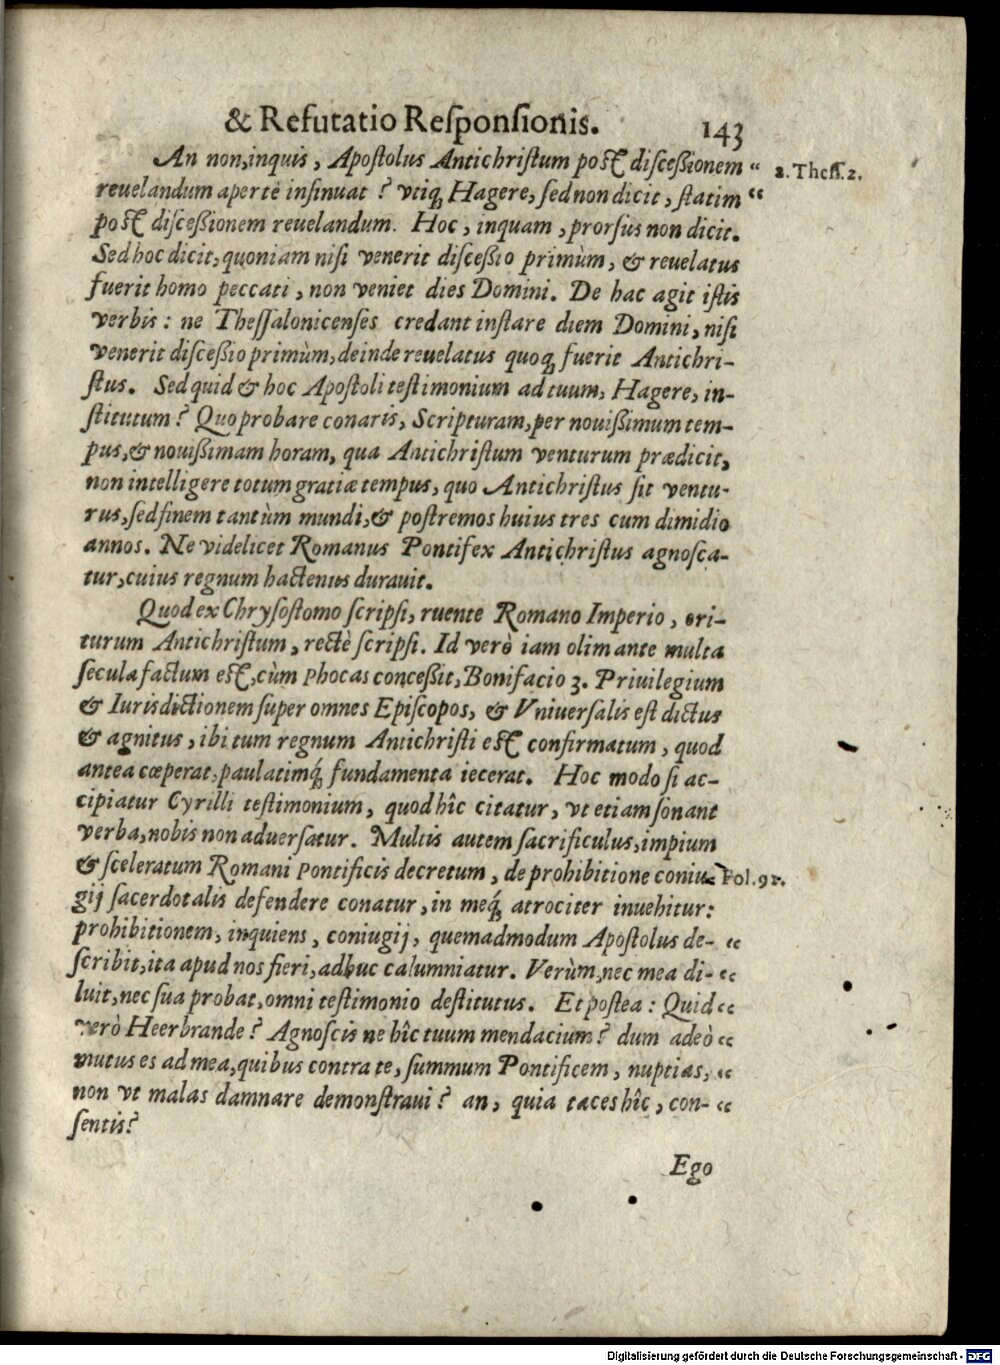 & Refutatio Reſponſionis. 143
An non, inquis, Apoſtolus Antichriſtum poſt diſceßionem “ 2. Theſſ. 2.
reuelandum apertè inſinuat? vtiq́; Hagere, ſed non dicit, ſtatim “
poſt diſceßionem reuelandum. Hoc, inquam, prorſus non dicit.
Sed hoc dicit, quoniam niſi venerit diſceßio primùm, & reuelatus
fuerit homo peccati, non veniet dies Domini. De hac agit iſtis
verbis: ne Theſſalonicenſes credant inſtare diem Domini, niſi
venerit diſceßio primùm, deinde reuelatus quoq; fuerit Antichri-
ſtus. Sed quid & hoc Apoſtoli teſtimonium ad tuum, Hagere, in-
ſtitutum? Quo probare conaris, Scripturam, per nouißimum tem-
pus, & nouißimam horam, qua Antichriſtum venturum prædicit,
non intelligere totum gratiæ tempus, quo Antichriſtus ſit ventu-
rus, ſed finem tantùm mundi, & poſtremos huius tres cum dimidio
annos. Ne videlicet Romanus Pontifex Antichriſtus agnoſca-
tur, cuius regnum hactenus durauit.
Quod ex Chryſoſtomo ſcripſi, ruente Romano Imperio, ori-
turum Antichriſtum, rectè ſcripſi. Id verò iam olim ante multa
ſecula factum eſt, cùm Phocas conceßit, Bonifacio 3. Priuilegium
& Iurisdictionem ſuper omnes Epiſcopos, & Vniuerſalis eſt dictus
& agnitus, ibi tum regnum Antichriſti eſt confirmatum, quod
antea cœperat, paulatimq́; fundamenta iecerat. Hoc modo ſi ac-
cipiatur Cyrilli teſtimonium, quod hîc citatur, vt etiam ſonant
verba, nobis non aduerſatur. Multis autem ſacrificulus, impium
& ſceleratum Romani Pontificis decretum, de prohibitione coniu- Fol. 91.
gij ſacerdotalis defendere conatur, in meq́; atrociter inuehitur:
prohibitionem, inquiens, coniugij, quemadmodum Apoſtolus de- “
ſcribit, ita apud nos fieri, adhuc calumniatur. Verùm, nec mea di- “
luit, nec ſua probat, omni teſtimonio deſtitutus. Et poſtea: Quid “
verò Heerbrande? Agnoſcis ne hîc tuum mendacium? dum adeò “
mutus es ad mea, quibus contra te, ſummum Pontificem, nuptias, “
non vt malas damnare demonſtraui? an, quia taces hîc, con- “
ſentis?
Ego
Digitalisierung gefördert durch die Deutsche Forschungsgemeinschaft - DFG